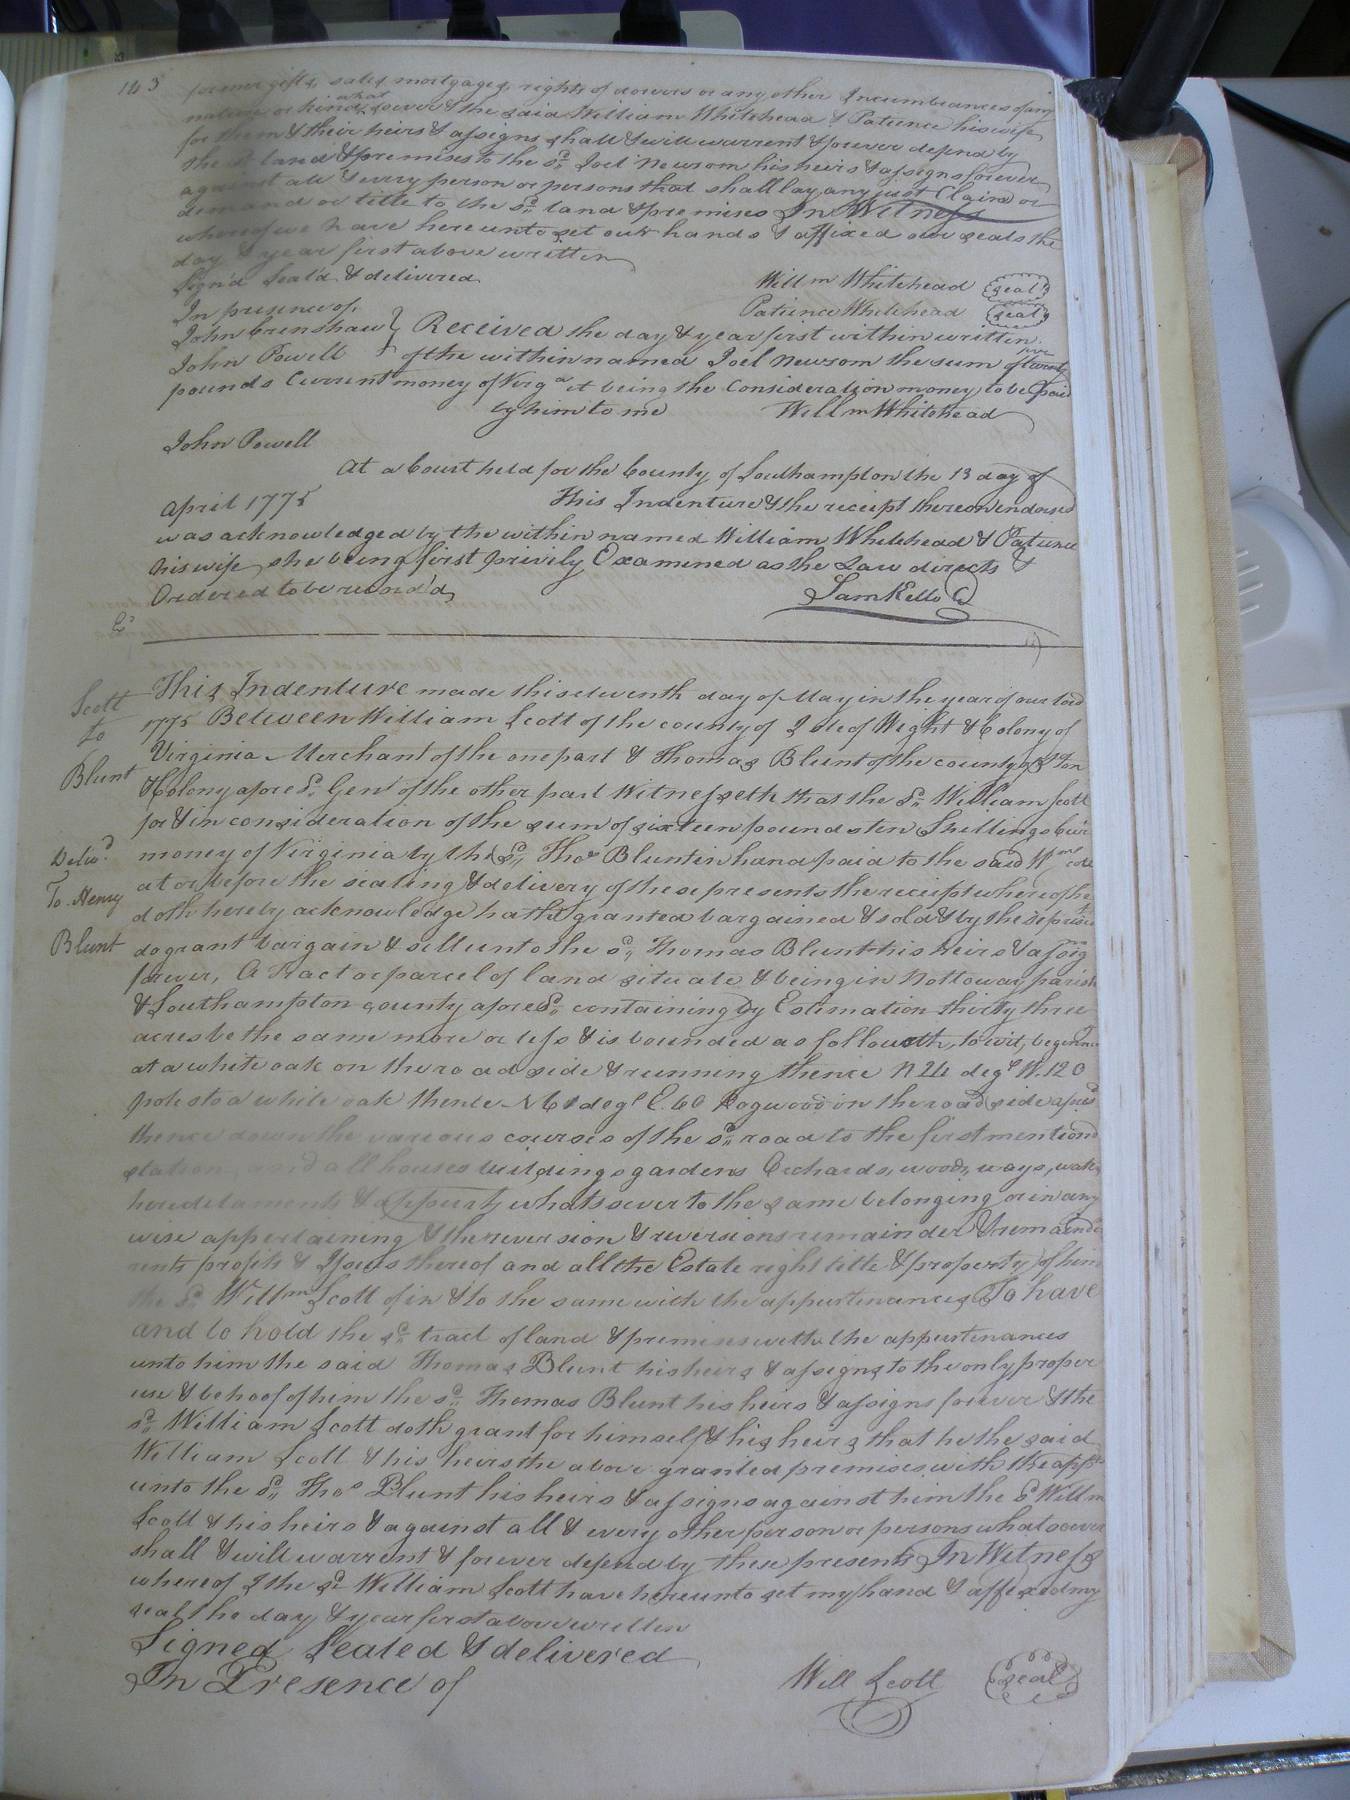 143
former gifts, sales mortgages, rights of dowers or any other Incumbrances of any
nature or kind whatsoever & the said William Whitehead & Patience his wife
for them & their heirs & assigns shall & will warrent & forever defend by
the sd. land & premises to the sd. Joel Newsom his heirs & assigns forever
against all & every person or persons that shall lay any just Claim or
demand or title to the sd. land & premises In Witness
whereof we have hereunto set our hands & affixed our seals the
day & year first above written
Sign'd Seal'd & delivered
Willm Whitehead seal
In presence of,
Patience Whitehead seal
John Crenshaw } Received the day & year first within written
John Powell of the within named Joel Newsom the sum of twenty five
pounds Current money of Virga it being the Consideration money to be paid
by him to me Willm Whitehead
John Powell
At a Court held for the County of Southampton the 13 day of
April 1775 This Indenture & the receipt thereon endorsed
was acknowledged by the within named William Whitehead & Patience
his wife, she being first privily Examined as the Law directs &
Ordered to be record'd
Sam Kello C
Ex
Scott
to
Blunt
This Indenture made this eleventh day of May in the year of our lord
1775 Between William Scott of the county of Isle of Wight & Colony of
Virginia Merchant of the one part & Thomas Blunt of the county of Ston
& Colony afore sd. Gent of the other part Witnesseth that the sd. William Scott
for & in consideration of the sum of sixteen pounds ten Shillings Curt
Delivd.
To Henry
Blunt
money of Virginia by the sd. Thos Blunt in hand paid to the said Wm Scott
at or before the sealing & delivery of these presents the receipt whereof he
doth hereby acknowledge hath granted bargained & sold & by these presents
do grant bargain & sell unto the sd. Thomas Blunt his heirs & assigns
forever, A Tract or parcel of land situate & being in Nottoway parish
& Southampton county aforesd. containing by Estimation thirty three
acres be the same more or less & is bounded as followeth, to wit, beginning
at a white oak on the road side & running thence N 24 degs W. 120
poles to a white oak thence N 61 degs E. 60 Dogwood in the road side aforesd
thence down the various courses of the sd. road to the first mentiond
station, and all houses buildings gardens Orchards, woods, ways, waters
heredetaments & appurts whatsoever to the same belonging or in any
wise appertaining & the reversion & reversions remainder & remainders
rents profits & Issues thereof and all the Estate right title & property of him
the sd. Willm Scott of in & to the same with the appurtenances To have
and to hold the sd. tract of land & premises with the appurtenances
unto him the said Thomas Blunt his heirs & assigns to the only proper
use & behoof of him the sd. Thomas Blunt his heirs & assigns forever & the
sd. William Scott doth grant for himself & his heirs that he the said
William Scott & his heirs the above granted premises with the apps
unto the sd. Thos Blunt his heirs & assigns against him the sd Willm
Scott & his heirs & against all & every other person or persons whatsoever
shall & will warrent & forever defend by these presents In Witness
whereof I the sd William Scott have hereunto set my hand & affixed my
seal the day & year first above written
Signed Sealed & delivered
In Presence of
Will Scott seal